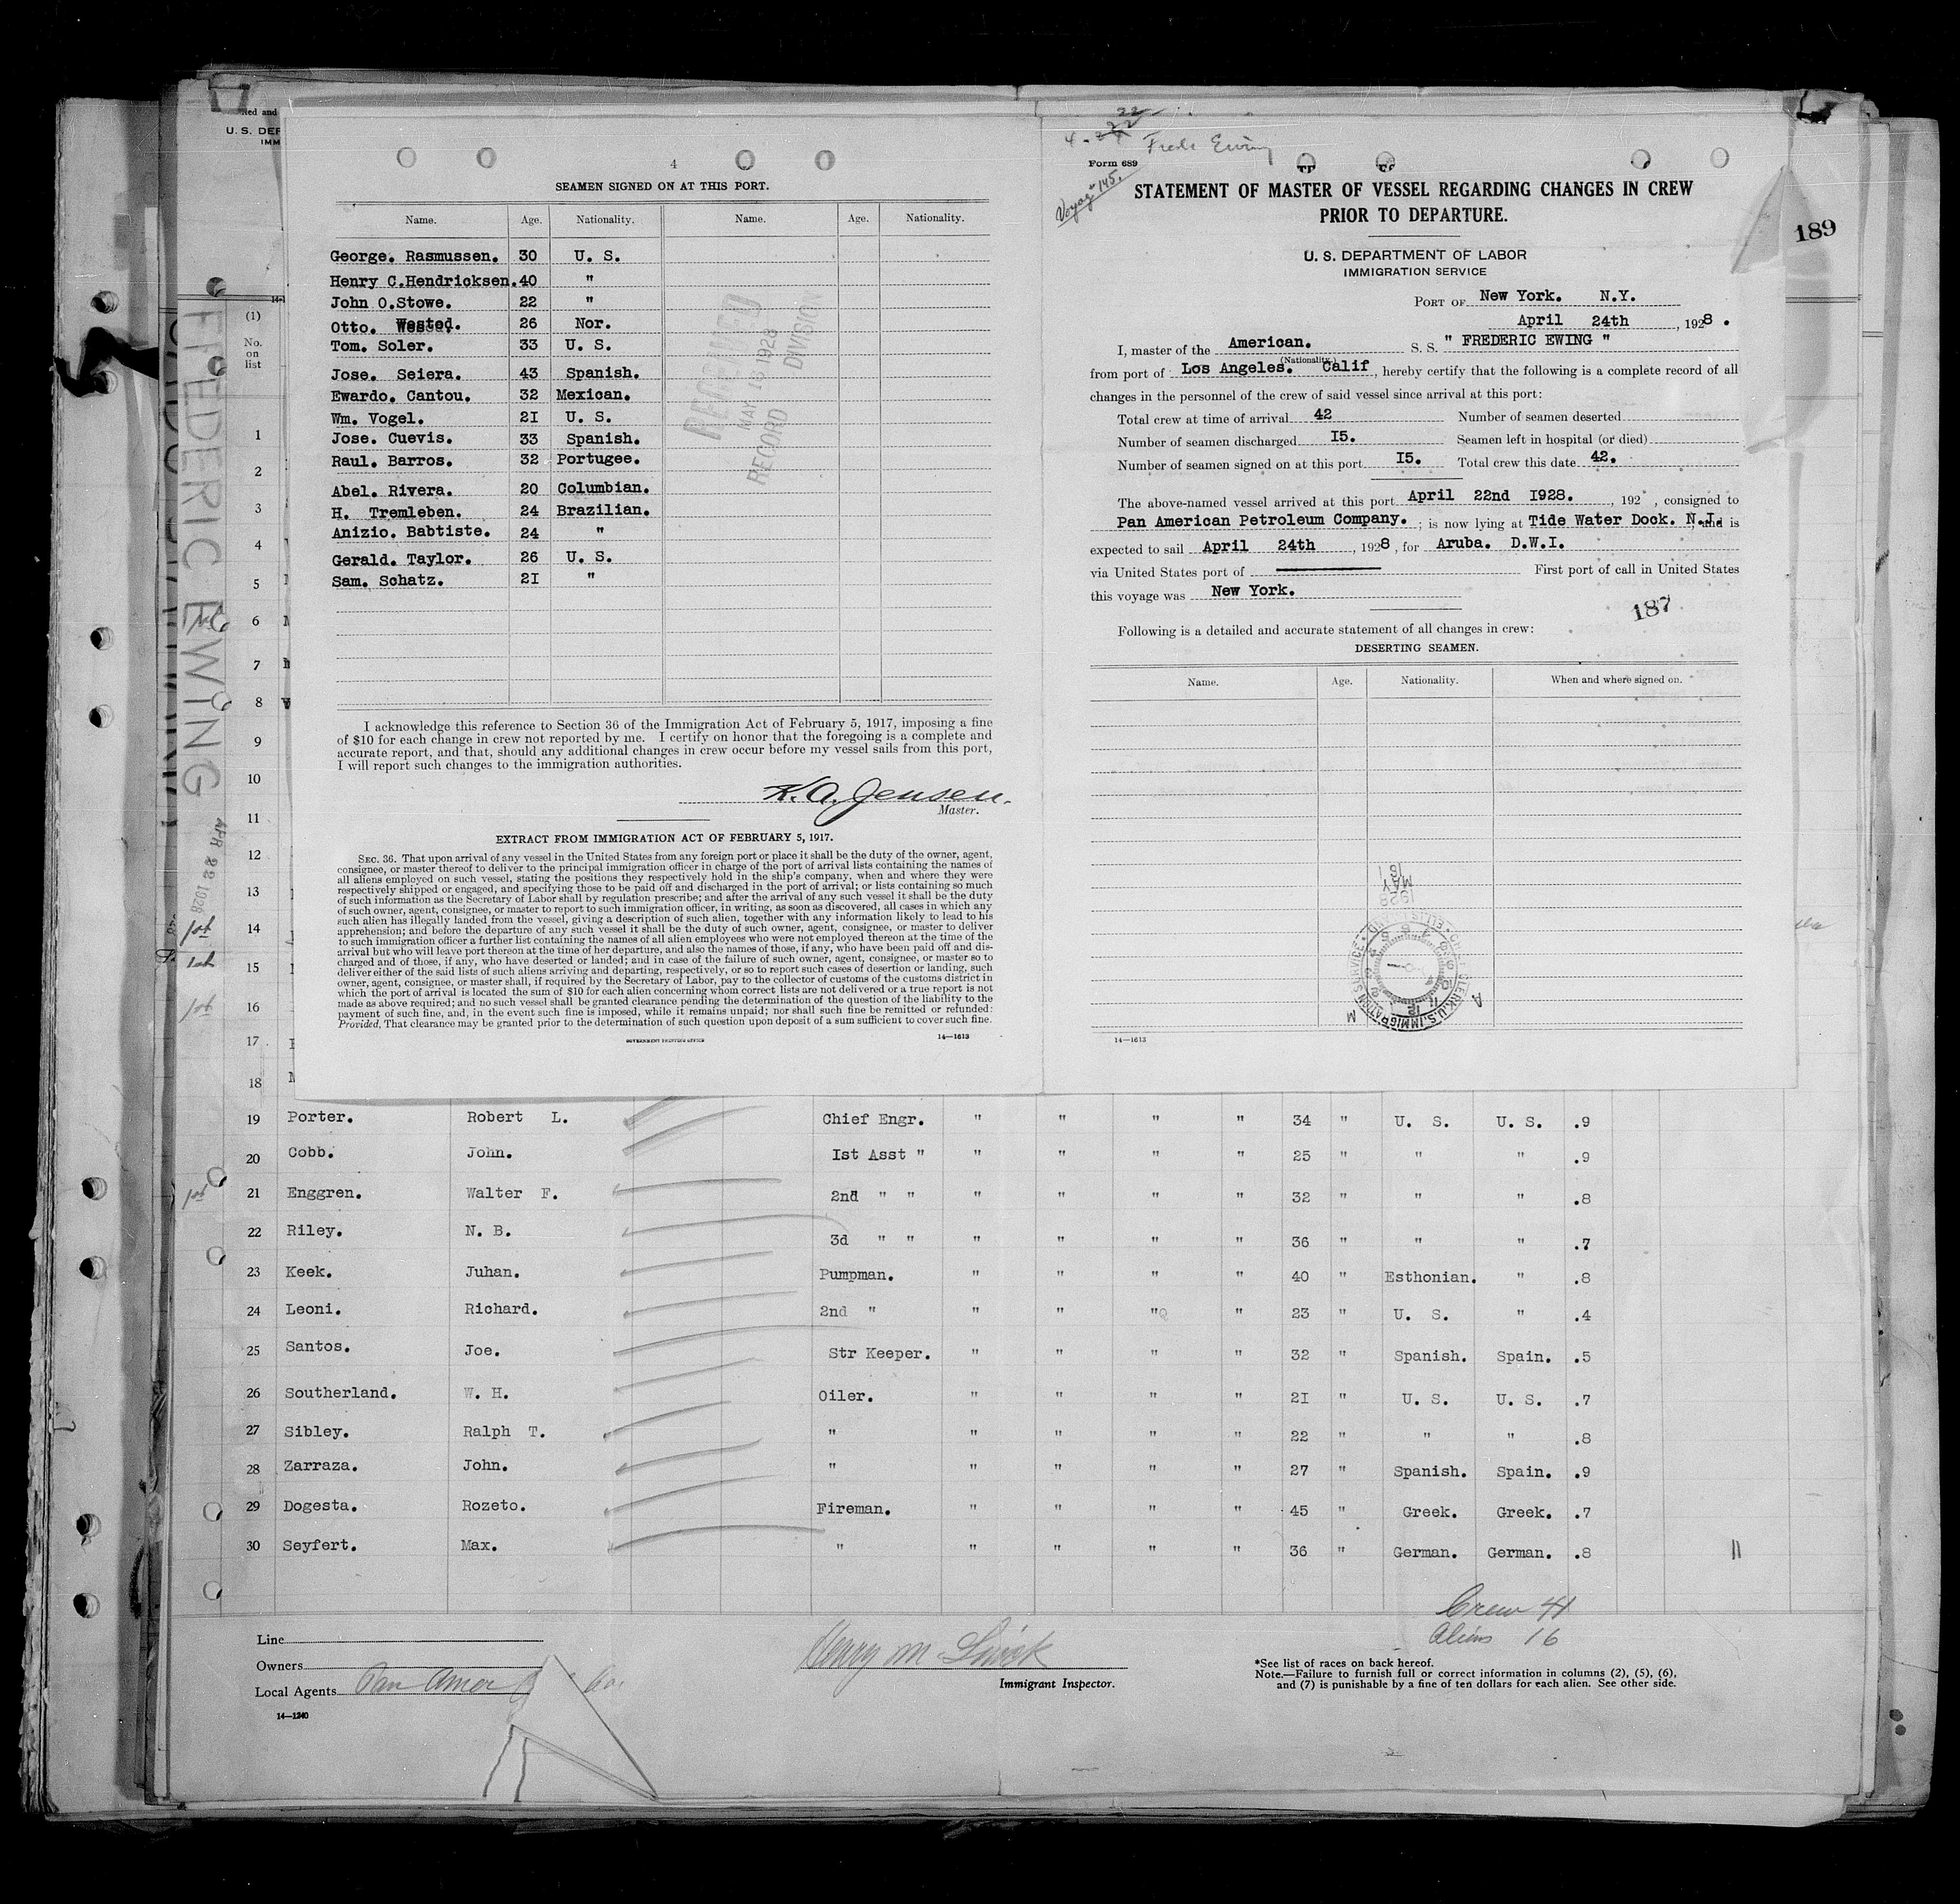 4
SEAMEN SIGNED ON AT THIS PORT.
Name. Age. Nationality. Name. Age. Nationality.
George. Rasmussen. 30 U. S.
Henry C.Hendricksen. 40 "
John O.Stowe. 22 "
Otto. Wested. 26 Nor.
Tom. Soler. 33 U. S.
Jose. Seiera. 43 Spanish.
Ewardo. Cantou. 32 Mexican.
Wm. Vogel. 2I U. S.
Jose. Cuevis. 33 Spanish.
Raul. Barros. 32 Portugee.
Abel. Rivera. 20 Columbian.
H. Tremleben. 24 Brazilian.
Anizio. Babtiste. 24 "
Gerald. Taylor. 26 U. S.
Sam. Schatz. 2I "
RECEIVED
MAY 16 1928
RECORD DIVISION
I acknowledge this reference to Section 36 of the Immigration Act of February 5, 1917, imposing a fine
of $10 for each change in crew not reported by me. I certify on honor that the foregoing is a complete and
accurate report, and that, should any additional changes in crew occur before my vessel sails from this port,
I will report such changes to the immigration authorities.
K.A. Jensen.
Master.
EXTRACT FROM IMMIGRATION ACT OF FEBRUARY 5, 1917.
SEC. 36. That upon arrival of any vessel in the United States from any foreign port or place it shall be the duty of the owner, agent,
consignee, or master thereof to deliver to the principal immigration officer in charge of the port of arrival lists containing the names of
all aliens employed on such vessel, stating the positions they respectively hold in the ship's company, when and where they were
respectively shipped or engaged, and specifying those to be paid off and discharged in the port of arrival; or lists containing so much
of such information as the Secretary of Labor shall by regulation prescribe; and after the arrival of any such vessel it shall be the duty
of such owner, agent, consignee, or master to report to such immigration officer, in writing, as soon as discovered, all cases in which any
such alien has illegally landed from the vessel, giving a description of such alien, together with any information likely to lead to his
apprehension; and before the departure of any such vessel it shall be the duty of such owner, agent, consignee, or master to deliver
to such immigration officer a further list containing the names of all alien employees who were not employed thereon at the time of the
arrival but who will leave port thereon at the time of her departure, and also the names of those, if any, who have been paid off and dis-
charged and of those, if any, who have deserted or landed; and in case of the failure of such owner, agent, consignee, or master so to
deliver either of the said lists of such aliens arriving and departing, respectively, or so to report such cases of desertion or landing, such
owner, agent, consignee, or master shall, if required by the Secretary of Labor, pay to the collector of customs of the customs district in
which the port of arrival is located the sum of $10 for each alien concerning whom correct lists are not delivered or a true report is not
made as above required; and no such vessel shall be granted clearance pending the determination of the question of the liability to the
payment of such fine, and, in the event such fine is imposed, while it remains unpaid; nor shall such fine be remitted or refunded:
Provided, That clearance may be granted prior to the determination of such question upon deposit of a sum sufficient to cover such fine.
GOVERNMENT PRINTING OFFICE 14—1613
Fredc Ewing
Form 689
Voyag 145.
STATEMENT OF MASTER OF VESSEL REGARDING CHANGES IN CREW
PRIOR TO DEPARTURE.
U. S. DEPARTMENT OF LABOR
IMMIGRATION SERVICE
PORT OF New York. N.Y.
April 24th , 1928 .
I, master of the American. S. S. " FREDERIC EWING "
(Nationality.)
from port of Los Angeles. Calif , hereby certify that the following is a complete record of all
changes in the personnel of the crew of said vessel since arrival at this port:
Total crew at time of arrival 42 Number of seamen deserted
Number of seamen discharged I5. Seamen left in hospital (or died)
Number of seamen signed on at this port I5. Total crew this date 42.
The above-named vessel arrived at this port April 22nd I928. , 192 , consigned to
Pan American Petroleum Company. ; is now lying at Tide Water Dock. N.J. and is
expected to sail April 24th , 1928 , for Aruba. D.W.I.
via United States port of First port of call in United States
this voyage was New York.
187
Following is a detailed and accurate statement of all changes in crew:
DESERTING SEAMEN.
Name. Age. Nationality. When and where signed on.
1928
MAY
16
14—1613
189
U. S. DEP
IMM
(1)
No.
on
list
FREDERIC EWING
APR 22 1928
1
2
3
4
5
6
7
8
9
10
11
12
13
14
15
16
17
18
19 Porter. Robert L. Chief Engr. " " " " 34 " U. S. U. S. .9
20 Cobb. John. Ist Asst " " " " " 25 " " " .9
21 Enggren. Walter F. 2nd " " " " " " 32 " " " .8
22 Riley. N. B. 3d " " " " " " 36 " " " .7
23 Keek. Juhan. Pumpman. " " " " 40 " Esthonian. " .8
24 Leoni. Richard. 2nd " " " " " 23 " U. S. " .4
25 Santos. Joe. Str Keeper. " " " " 32 " Spanish. Spain. .5
26 Southerland. W. H. Oiler. " " " " 2I " U. S. U. S. .7
27 Sibley. Ralph T. " " " " " 22 " " " .8
28 Zarraza. John. " " " " " 27 " Spanish. Spain. .9
29 Dogesta. Rozeto. Fireman. " " " " 45 " Greek. Greek. .7
30 Seyfert. Max. " " " " " 36 " German. German. .8
Crew 41
Aliens 16
Line
Owners
Local Agents Pan Amer
14—1240
Immigrant Inspector.
*See list of races on back hereof.
Note.—Failure to furnish full or correct information in columns (2), (5), (6),
and (7) is punishable by a fine of ten dollars for each alien. See other side.